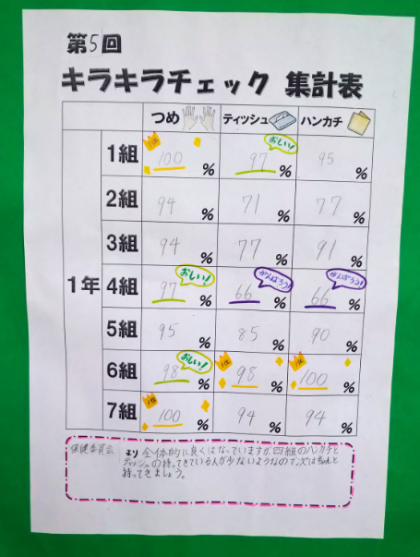 第5回
キラキラチェック 集計表
つめ ティッシュ ハンカチ
1年
1組 1位 100% おしい! 97% 95%
2組 94% 71% 77%
3組 94% 77% 91%
4組 おしい! 97% がんばろう! 66% がんばろう! 66%
5組 95% 85% 90%
6組 おしい! 98% 1位 98% 1位 100%
7組 1位 100% 94% 94%
保健委員会 より 全体的に良くなっていますが、四組のハンカチと
ティッシュの持ってきている人が少ないようなので、次はちゃんと
持ってきましょう。